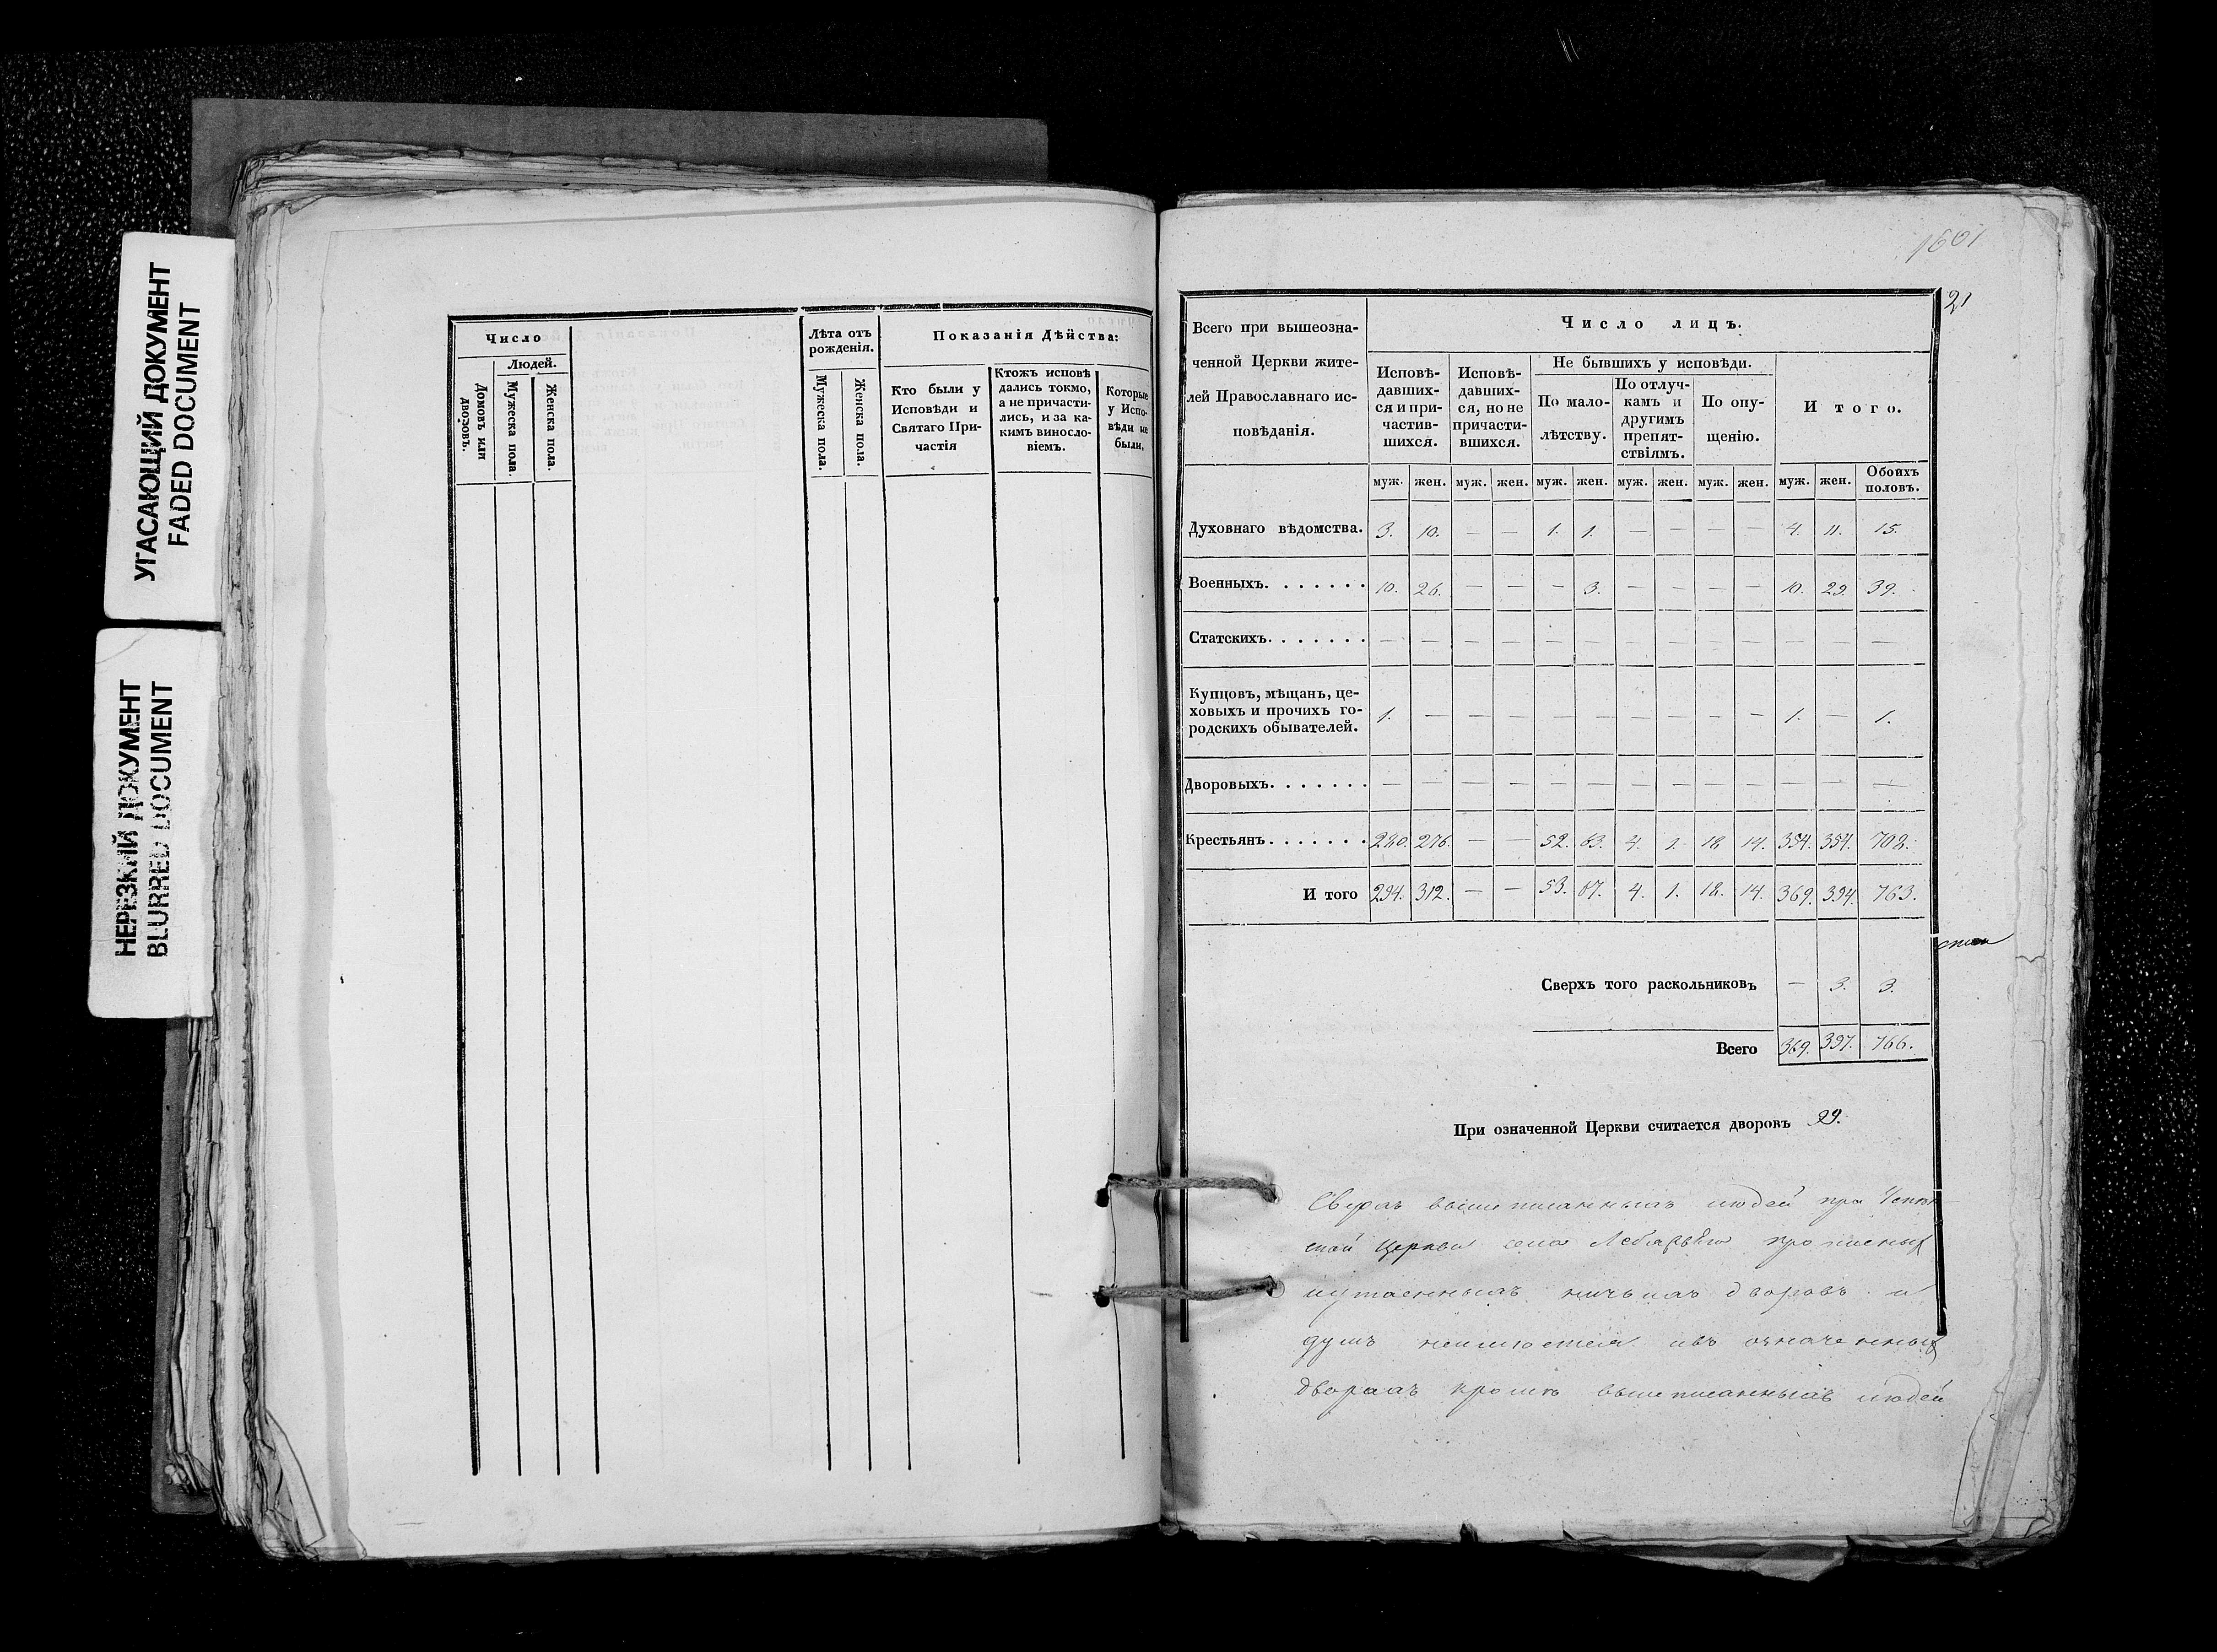 УГАСАЮЩИЙ ДОКУМЕНТ
FADED DOCUMENT
НЕРЕЗКИЙ ДОКУМЕНТ
BLURRED DOCUMENT
Число
Людей.
Домовъ или дворовъ.
Мужеска пола.
Женска пола.
Лѣта отъ рожденія.
Мужеска пола.
Женска пола.
Показанія Дѣйства:
Кто были у
Исповѣди и
Святаго При-
частія
Ктожъ исповѣ
дались токмо,
а не причасти-
лись, и за ка-
кимъ виносло-
віемъ.
Которые
у Испо-
вѣди не
были.
1601
21
Всего при вышеозна-
ченной Церкви жите-
лей Православнаго ис-
повѣданія.
Число лицъ.
Исповѣ-
давших-
ся и при-
частив-
шихся.
Исповѣ-
давших-
ся, но не
причасти-
вшихся.
Не бывшихъ у исповѣди.
По мало-
лѣтству.
По отлуч-
камъ и
другимъ
препят-
ствіямъ.
По опу-
щенію.
Итого.
муж. жен. муж. жен. муж. жен. муж. жен. муж. жен. муж. жен. Обоихъ половъ.
Духовнаго вѣдомства. 3. 10. — — 1. 1. — — — — 4. 11. 15.
Военныхъ. . . . . . . 10. 26. — — — 3. — — — — 10. 29. 39.
Статскихъ. . . . . . . — — — — — — — — — — — — —
Купцовъ, мѣщанъ, це-
ховыхъ и прочихъ го-
родскихъ обывателей. 1. — — — — — — — — — 1. — 1.
Дворовыхъ. . . . . . . — — — — — — — — — — — — —
Крестьянъ. . . . . . . 280. 276. — — 52. 63. 4. 1. 18 14. 354. 354. 708.
И того 294. 312. — — 53. 67. 4. 1. 18. 14. 369. 394. 763.
Сверхъ того раскольниковъ — 3. 3.
Всего 369. 397. 766.
При означенной Церкви считается дворовъ 29.
Сверхъ вышеписанныхъ людей при
ской Церкви села прописныхъ
иутаенныхъ ничьихъ дворовъ и
душъ неимѣется ивъ означенныхъ
дворахъ кромѣ вышеписанныхъ людей